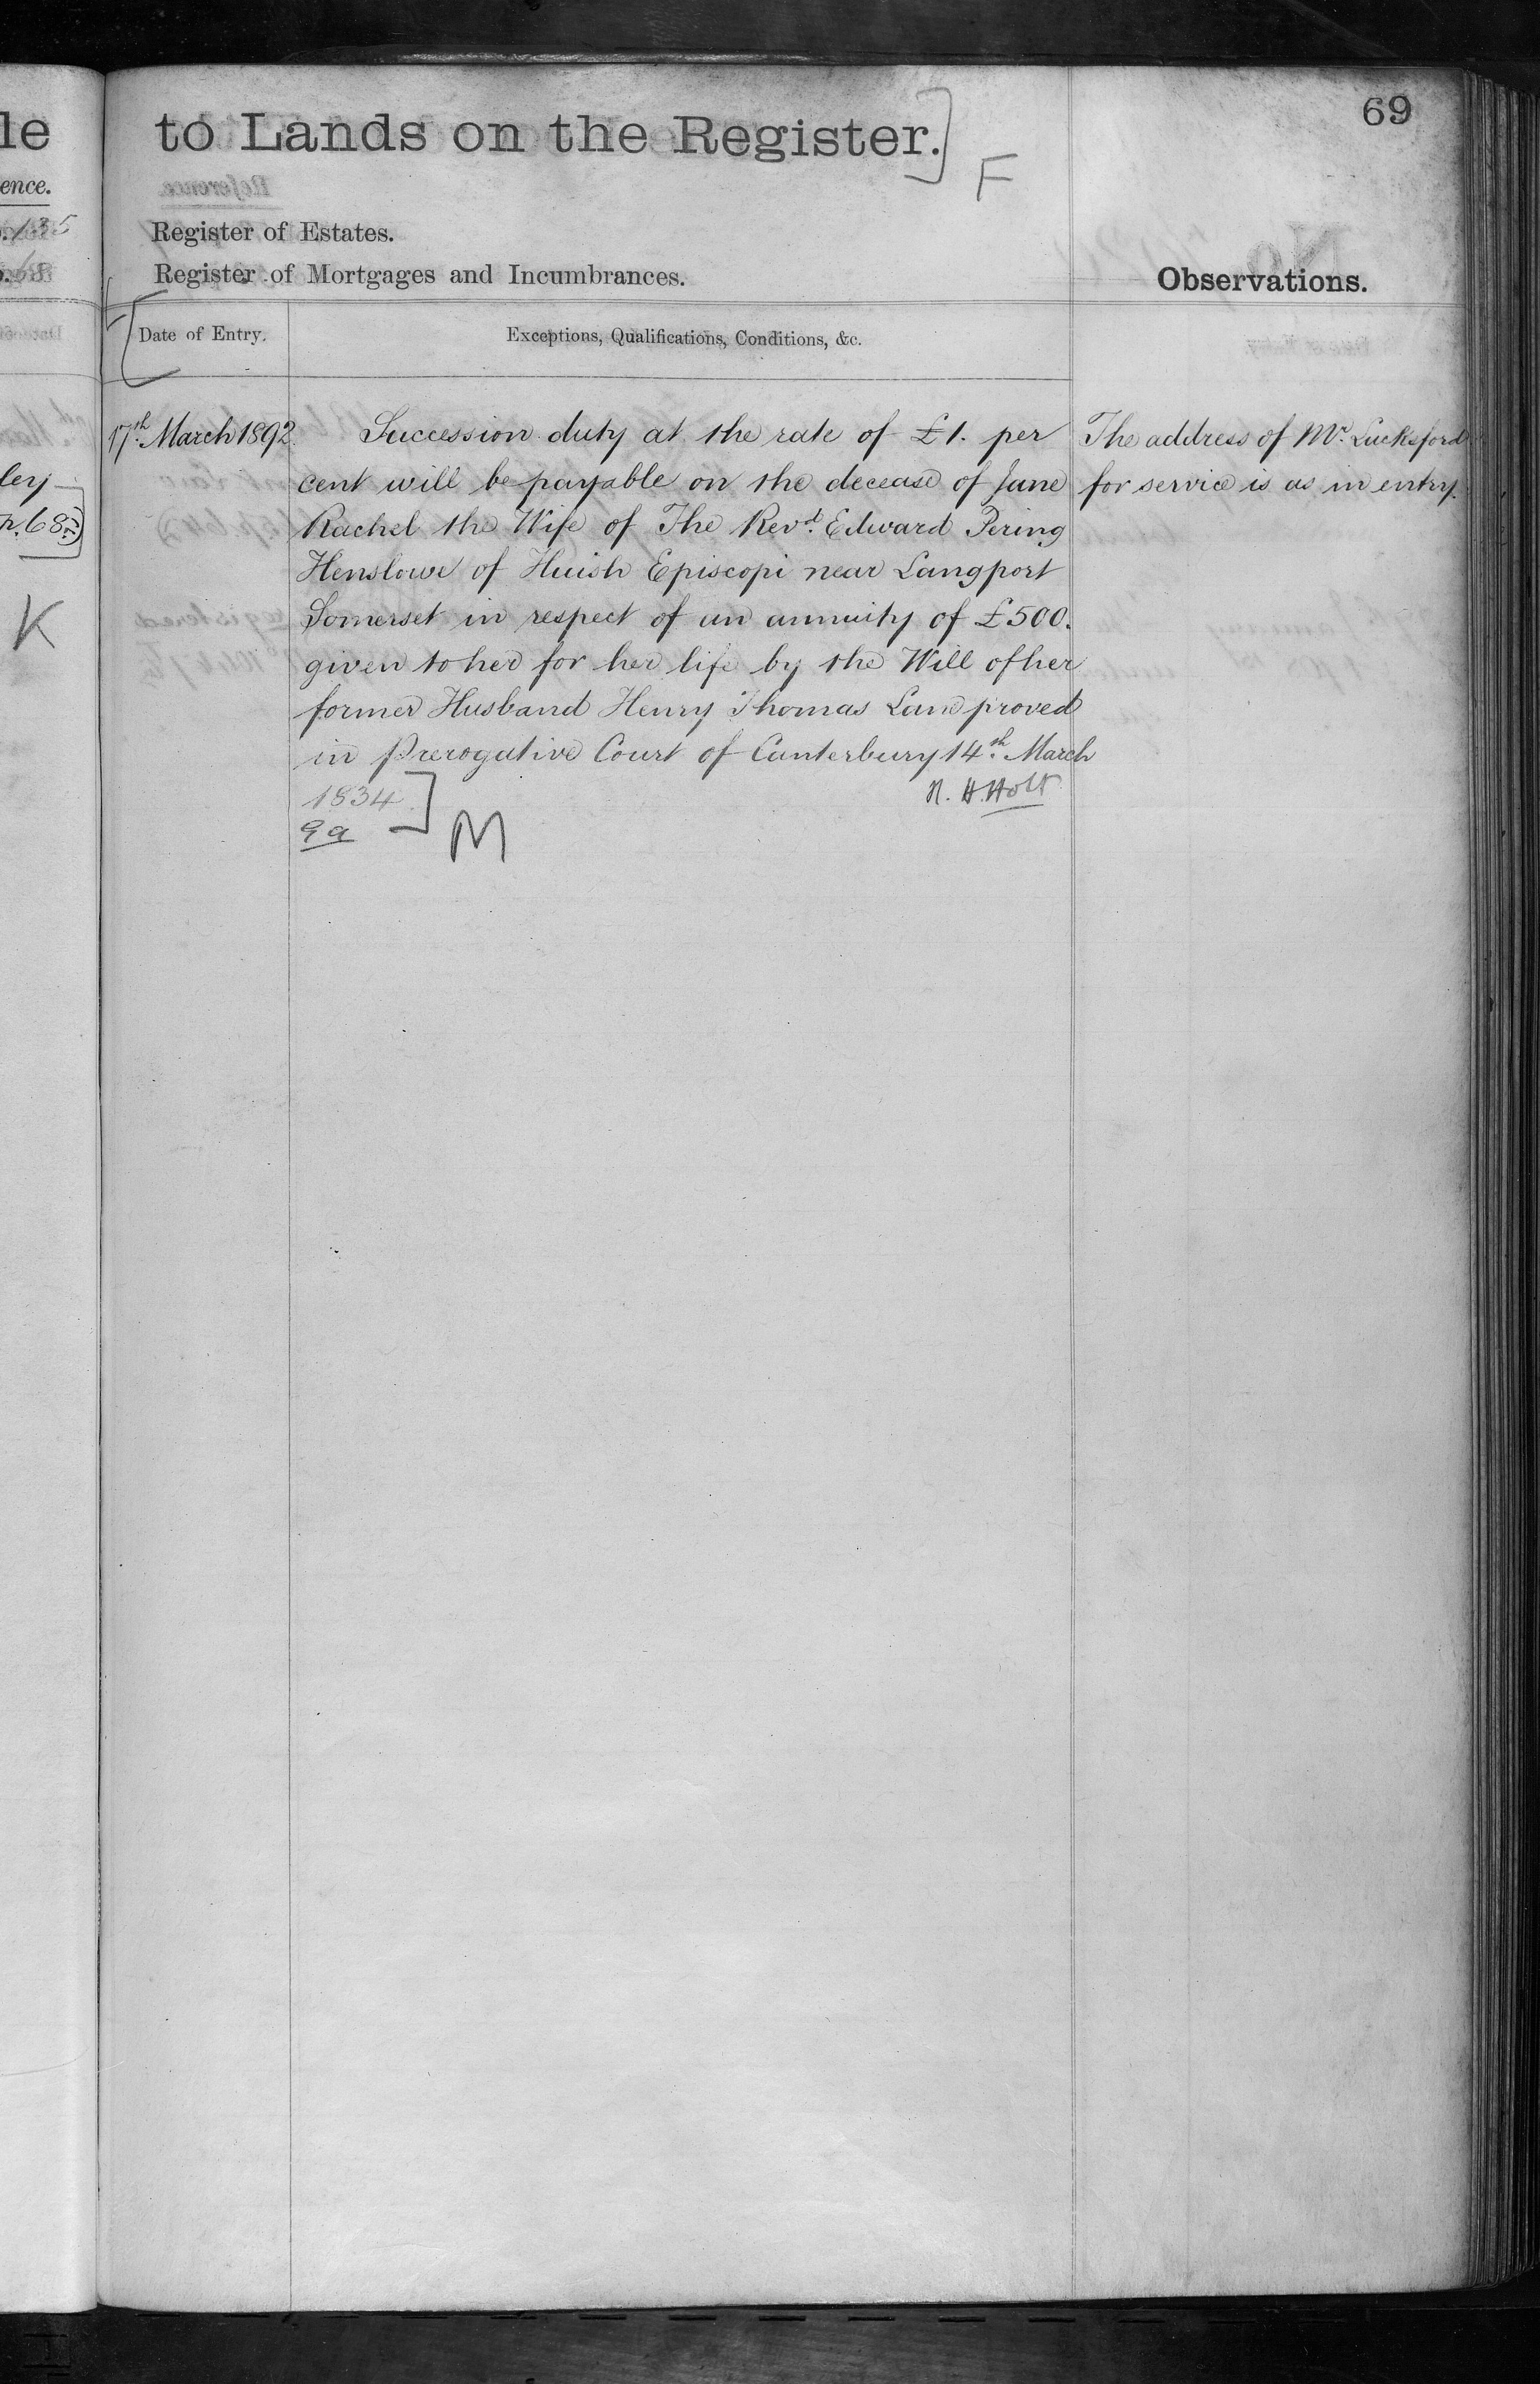 le
ence.
135
ley
p. 68
K
69
to Lands on the Register.]
F
Register of Estates.
Register of Mortgages and Incumbrances.
Observations.
Date of Entry.
Exceptions, Qualifications, Conditions, &c.
17th March 1892.
Succession duty at the rate of £1. per
cent will be payable on the decease of Jane
Rachel the Wife of The Revd. Edward Pering
Henslowe of Huish Episcopi near Langport
Somerset in respect of an annuity of £500.
given to her for her life by the Will of her
former Husband Henry Thomas Lane proved
in Prerogative Court of Canterbury 14th March
1834.
9a
]
M
H. Holt
The address of Mr. Lucksford
for service is as in entry.